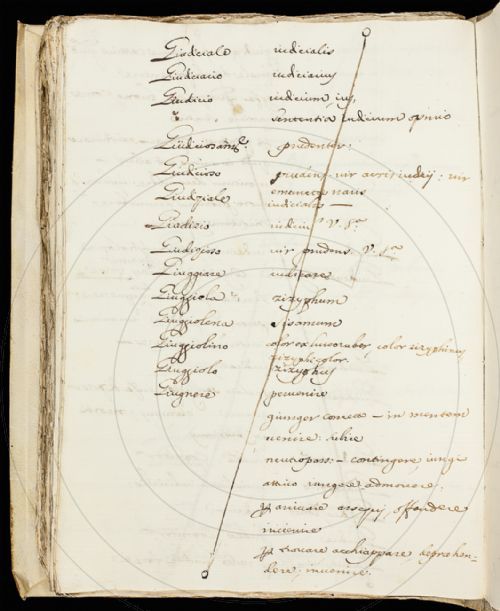 Giudiciale iudicialis
Giudiciario iudiciarius
Giudicio iudicium ius,
sententia iudicium opinio
Giudiciosamte. prudenter.
Giudicioso prudens vir acris iudicij: vir
emunctæ naris
Giudiziale iudicialis —
Giudizio iudiciũ V. Sa.
Giudizioso vir prudens. V. Sa
Giuggiare iudicare
Giuggiola zizyphum
Giuggiolena sisamum
Giuggiolino color ex luteo ruber, color zizyphinus
zizyphi color.
Giuggiolo zizyphus
Giugnere peruenire
giunger come — in mentem
uenire: subire
neutro pass: — contingere, iungi
attiuo iungere admouere.
p arriuare assequi, offendere
inuenire
p trouare acchiappare deprehen-
dere: inuenire.